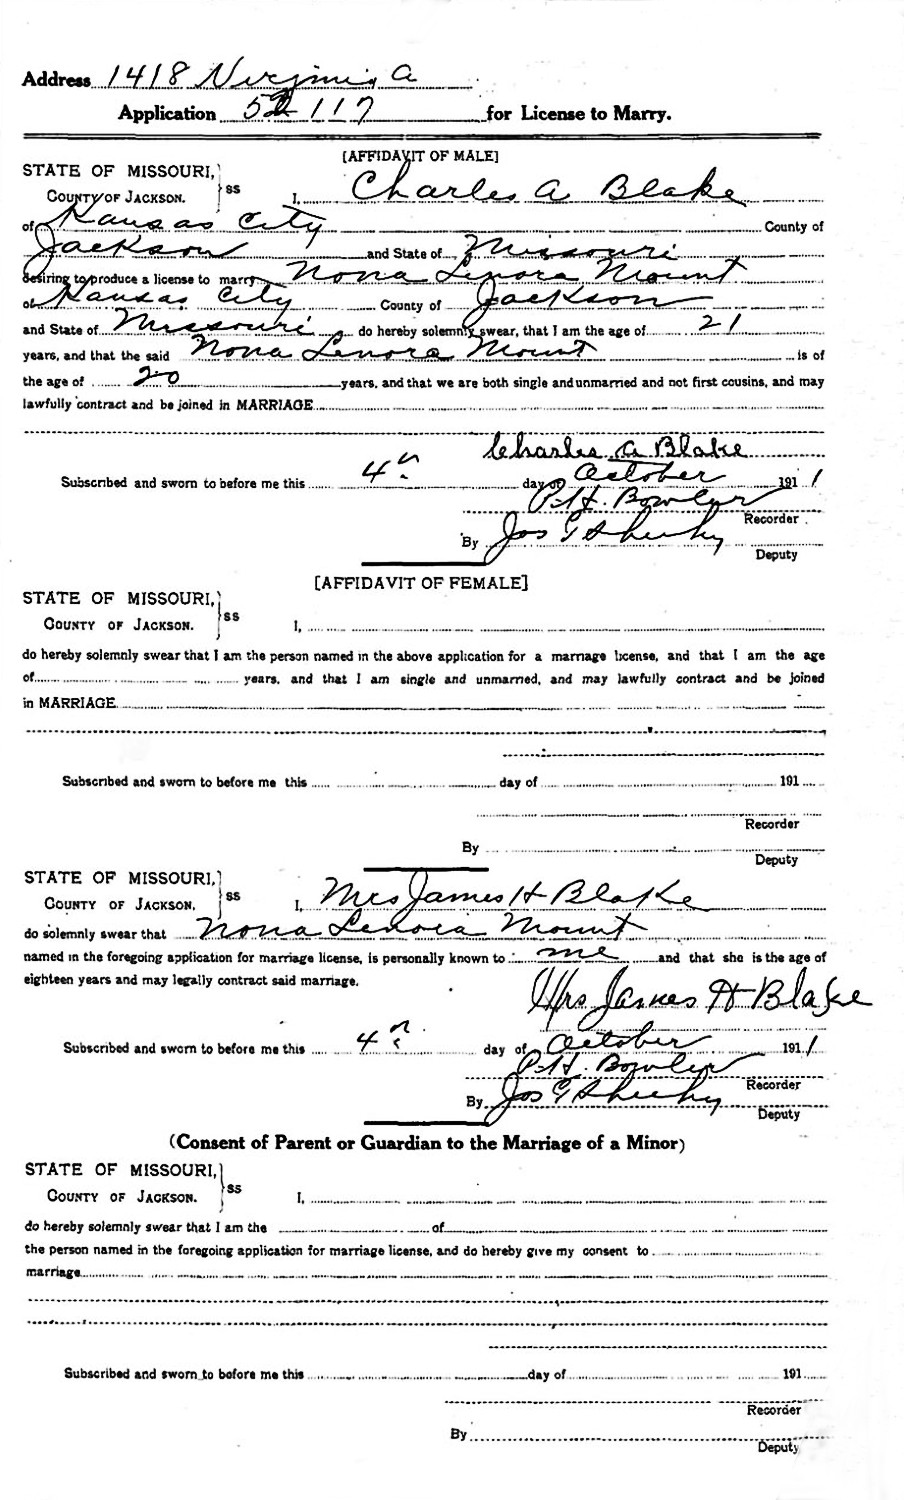 Address 1418 Virginia A
Application 52117 for License to Marry.
[AFFIDAVIT OF MALE]
STATE OF MISSOURI,
COUNTY OF JACKSON. } ss I, Charles A Blake
of Kansas City County of
Jackson and State of Missouri
desiring to produce a license to marry Nona Lenora Mount
of Kansas City County of Jackson
and State of Missouri do hereby solemnly swear, that I am the age of 21
years, and that the said Nona Lenora Mount is of
the age of 20 years, and that we are both single and unmarried and not first cousins, and may
lawfully contract and be joined in MARRIAGE
Charles A Blake
Subscribed and sworn to before me this 4th day of October 1911
P.H. Bowler
Recorder
By Jos G Sheehy
Deputy
[AFFIDAVIT OF FEMALE]
STATE OF MISSOURI,
COUNTY OF JACKSON. } ss I,
do hereby solemnly swear that I am the person named in the above application for a marriage license, and that I am the age
of years, and that I am single and unmarried, and may lawfully contract and be joined
in MARRIAGE
Subscribed and sworn to before me this day of 191
Recorder
By
Deputy
STATE OF MISSOURI,
COUNTY OF JACKSON, } ss I, Mrs James H Blake
do solemnly swear that Nona Lenora Mount
named in the foregoing application for marriage license, is personally known to me and that she is the age of
eighteen years and may legally contract said marriage.
Mrs James H Blake
Subscribed and sworn to before me this 4th day of October 1911
P.H. Bowler
Recorder
By Jos G Sheehy
Deputy
(Consent of Parent or Guardian to the Marriage of a Minor)
STATE OF MISSOURI,
COUNTY OF JACKSON. } ss I,
do hereby solemnly swear that I am the of
the person named in the foregoing application for marriage license, and do hereby give my consent to
marriage
Subscribed and sworn to before me this day of 191
Recorder
By
Deputy